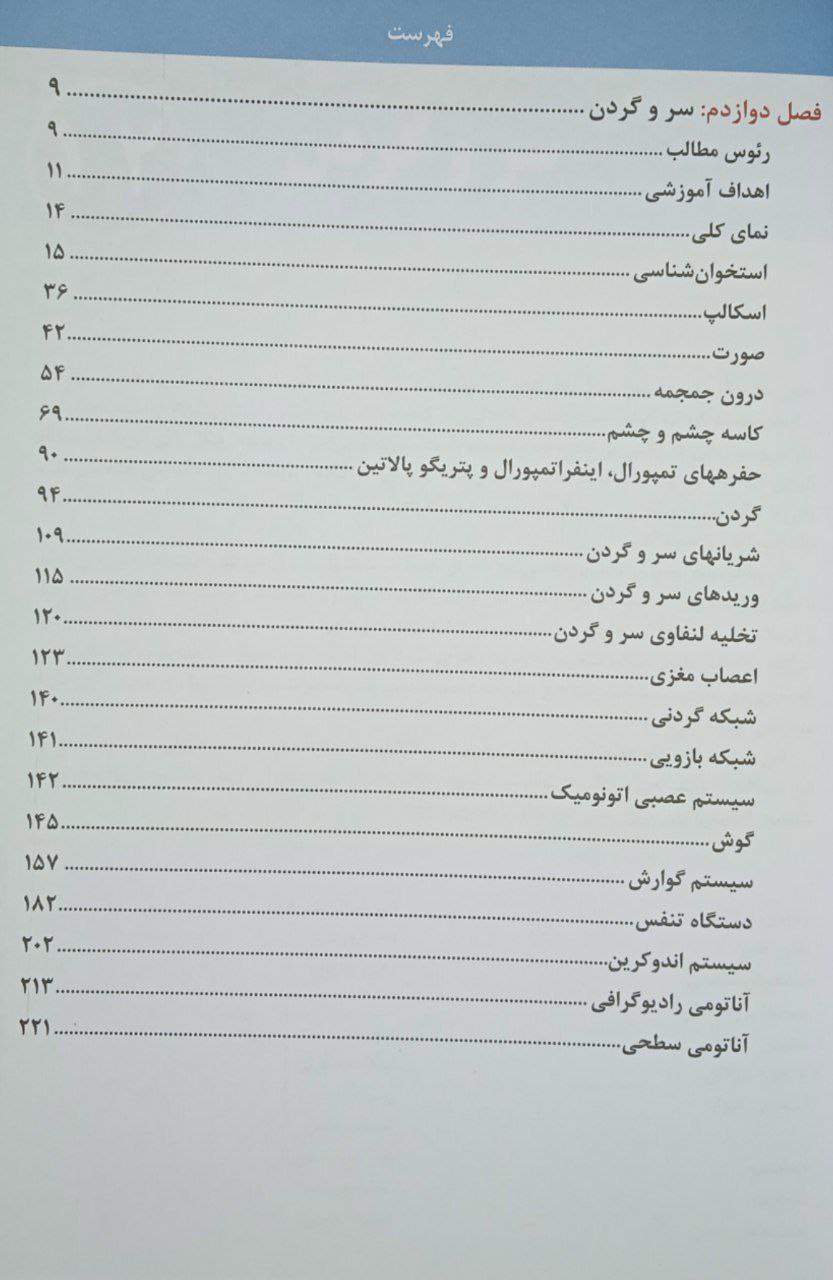 فهرست
فصل دوازدهم: سر و گردن ........ ۹
رئوس مطالب ........ ۹
اهداف آموزشی ........ ۱۱
نمای کلی ........ ۱۴
استخوان‌شناسی ........ ۱۵
اسکالپ ........ ۳۶
صورت ........ ۴۲
درون جمجمه ........ ۵۴
کاسه چشم و چشم ........ ۶۹
حفرههای تمپورال، اینفراتمپورال و پتریگو پالاتین ........ ۹۰
گردن ........ ۹۴
شریانهای سر و گردن ........ ۱۰۹
وریدهای سر و گردن ........ ۱۱۵
تخلیه لنفاوی سر و گردن ........ ۱۲۰
اعصاب مغزی ........ ۱۲۳
شبکه گردنی ........ ۱۴۰
شبکه بازویی ........ ۱۴۱
سیستم عصبی اتونومیک ........ ۱۴۲
گوش ........ ۱۴۵
سیستم گوارش ........ ۱۵۷
دستگاه تنفس ........ ۱۸۲
سیستم اندوکرین ........ ۲۰۲
آناتومی رادیوگرافی ........ ۲۱۳
آناتومی سطحی ........ ۲۲۱